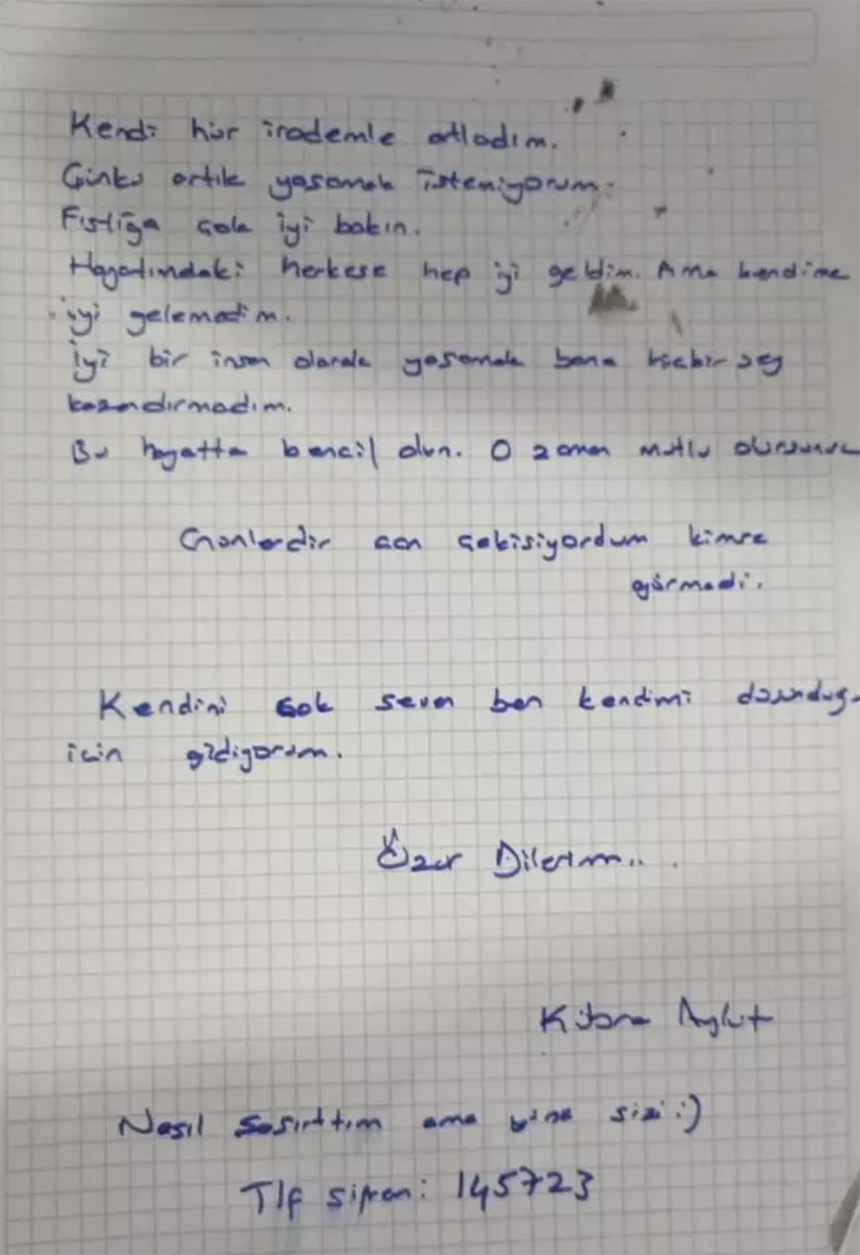 Kendi hür irademle atladım.
Çünkü artık yaşamak istemiyorum.
Fıstığa çok iyi bakın.
Hayatımdaki herkese hep iyi geldim. Ama kendime
iyi gelemedim.
İyi bir insan olarak yaşamak bana hiçbir şey
kazandırmadım.
Bu hayatta bencil olun. O zaman mutlu olursunuz
Günlerdir can çekişiyordum kimse
görmedi.
Kendini çok seven ben kendimi
için gidiyorum.
Özür Dilerim...
Kübra Aykut
Nasıl şaşırttım ama yine sizi :)
Tlf şifrem: 145723